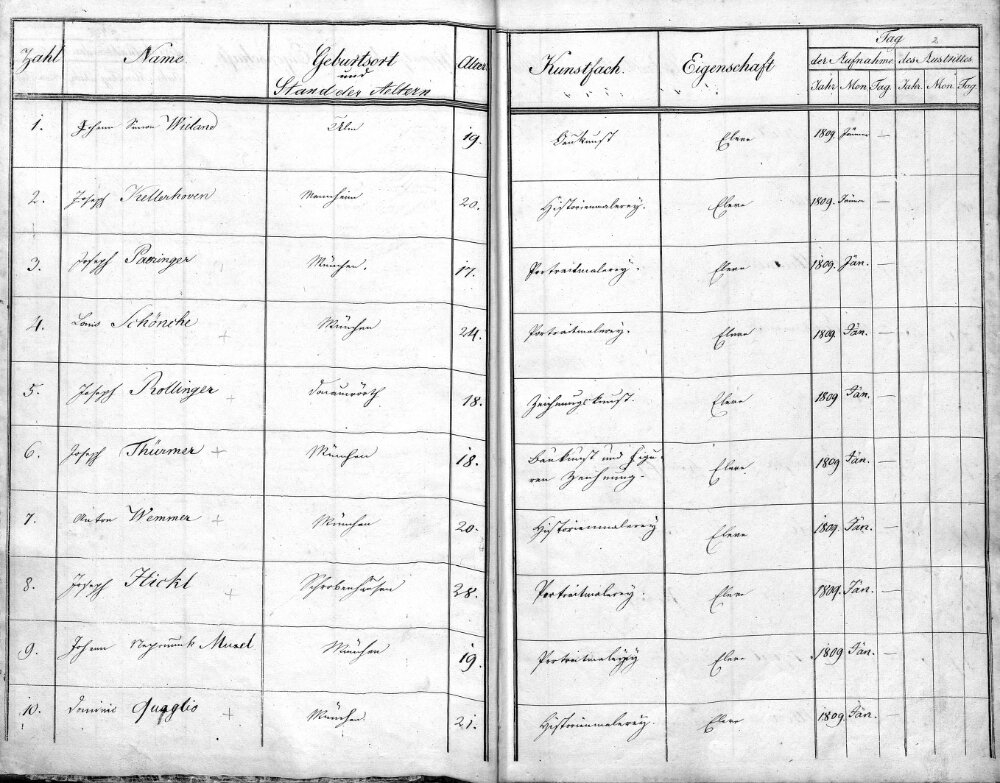 2
Zahl Name. Geburtsort und Stand der Aeltern Alter Kunstfach. Eigenschaft Tag
der Aufnahme des Austrittes
Jahr Mon. Tag. Jahr. Mon. Tag
1. Johann Simon Wieland Ulm 19. Baukunst Eleve 1809. Jänner —
2. Joseph Kellerhoven Mannheim 20. Historienmalerey. Eleve 1809. Jänner —
3. Joseph Paringer München. 17. Portraitmalerey. Eleve 1809. Jän. —
4. Louis Schönche + München 24. Portraitmalerey. Eleve 1809. Jän. —
5. Joseph Rollinger + Donauwörth 18. Zeichnungskunst. Eleve 1809 Jän. —
6. Joseph Thürmer + München 18. Baukunst und Figu
ren Zeichnung. Eleve 1809 Jän. —
7. Anton Wemmer + München 20. Historienmalerey Eleve 1809. Jän. —
8. Joseph Hickl + Schrobenhausen 28. Portraitmalerey. Eleve 1809. Jän. —
9. Johann Nepomuk Muxel München 19. Portraitmalerey Eleve 1809 Jän. —
10. Dominic Quaglio + München 21. Historienmalerey. Eleve 1809 Jän. —